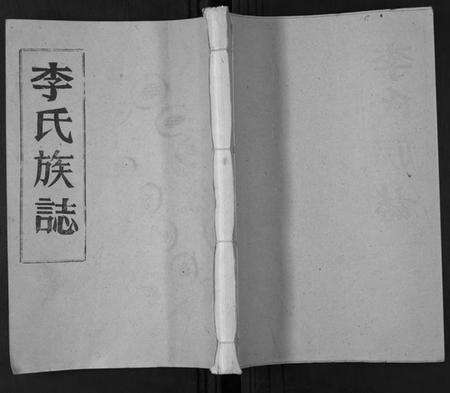 李氏族誌